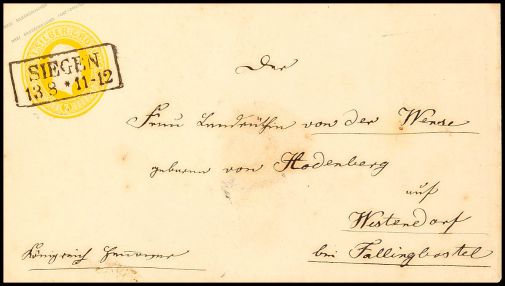 SILBERGROSCHEN
SIEGEN
13 8 * 11-12
Der
Frau Landräthin von der Wense
geborene von Hodenberg
auf
Westendorf
Königreich Hannover
bei Fallingbostel